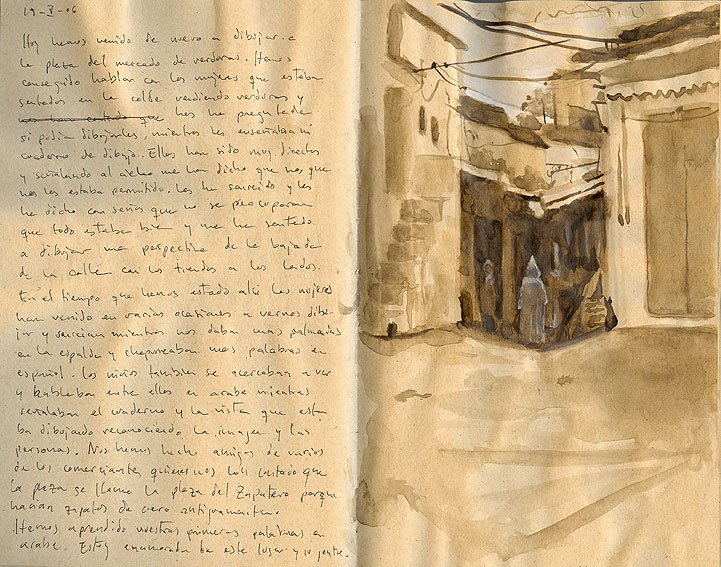 19-V-06
Hoy hemos venido de nuevo a dibujar a
la plaza del mercado de verduras. Hemos
conseguido hablar con las mujeres que estaban
sentadas en la calle vendiendo verduras y
que les he preguntado
si podía dibujarlas, mientras les enseñaba mi
cuaderno de dibujo. Ellas han sido muy directas
y señalando al cielo me han dicho que no, que
no les estaba permitido. Les he sonreido y les
he dicho con señas que no se preocuparan
que todo estaba bien y me he sentado
a dibujar una perspectiva de la bajada
de la calle con las tiendas a los lados.
En el tiempo que hemos estado allí las mujeres
han venido en varias ocasiones a vernos dibu-
jar y sonreian mientras nos daban unas palmadas
en la espalda y chapurreaban unas palabras en
español. Los niños tambien se acercaban a ver
y hablaban entre ellos en arabe mientras
señalaban el cuaderno y la vista que esta
ba dibujando reconociendo la imagen y las
personas. Nos hemos hecho amigos de varios
de los comerciantes quienes nos han contado que
la plaza se llama la plaza del Zapatero porque
hacian zapatos de cuero antiguamente.
Hemos aprendido nuestras primeras palabras en
arabe. Estoy enamorada de este lugar y su gente.